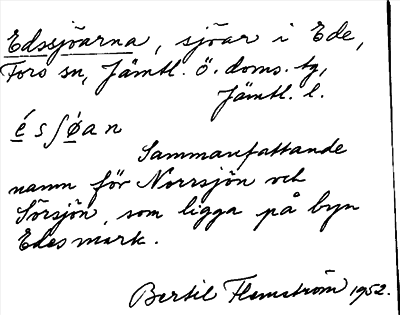 Edssjöarna, sjöar i Ede,
Fors sn, Jämtl. ö. doms. tg,
Jämtl. l.
é s ʃ ǿ a n
Sammanfattande
namn för Norrsjön och
Sörsjön, som ligga på byn
Edes mark.
Bertil Flemström 1952.